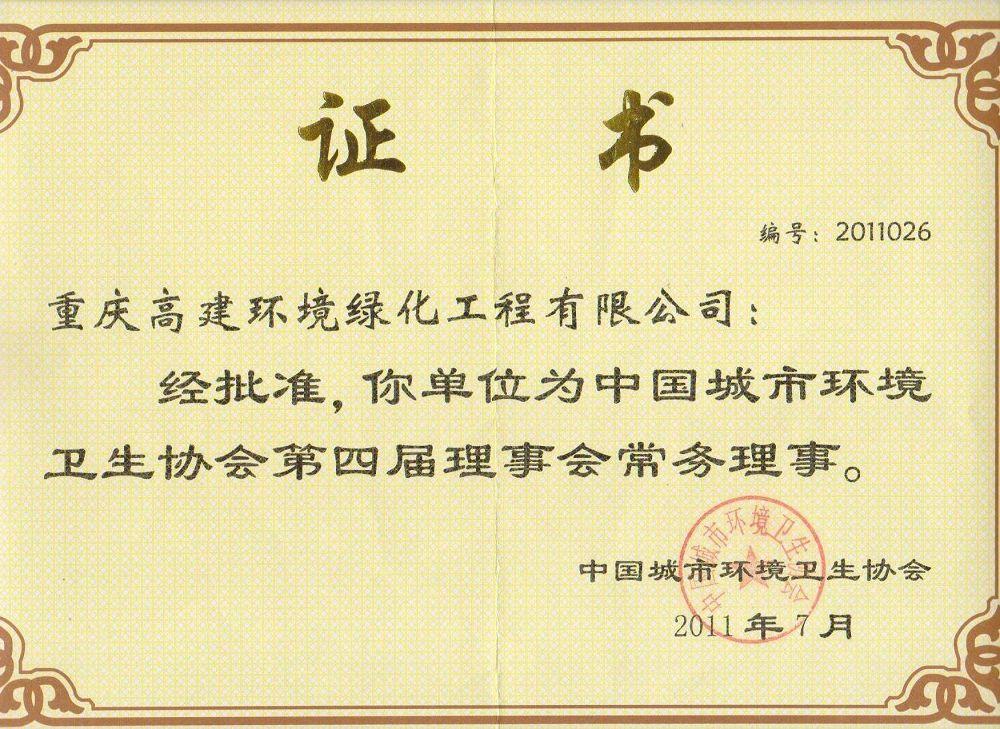 证 书
编号：2011026
重庆高建环境绿化工程有限公司：
经批准，你单位为中国城市环境
卫生协会第四届理事会常务理事。
中国城市环境卫生协会
中国城市环境卫生协会
2011 年 7 月